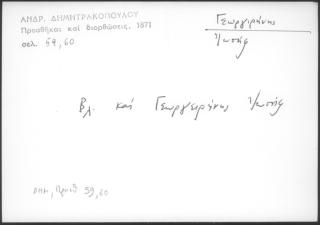 ΑΝΔΡ. ΔΗΜΗΤΡΑΚΟΠΟΥΛΟΥ
Προσθῆκαι καί διορθώσεις, 1871
σελ. 59, 60
Γεωργειρήνης
Ἰωσήφ
Βλ. καί Γεωργειρήνης Ἰωσήφ
ΔΗΜ, Προσθ 59, 60